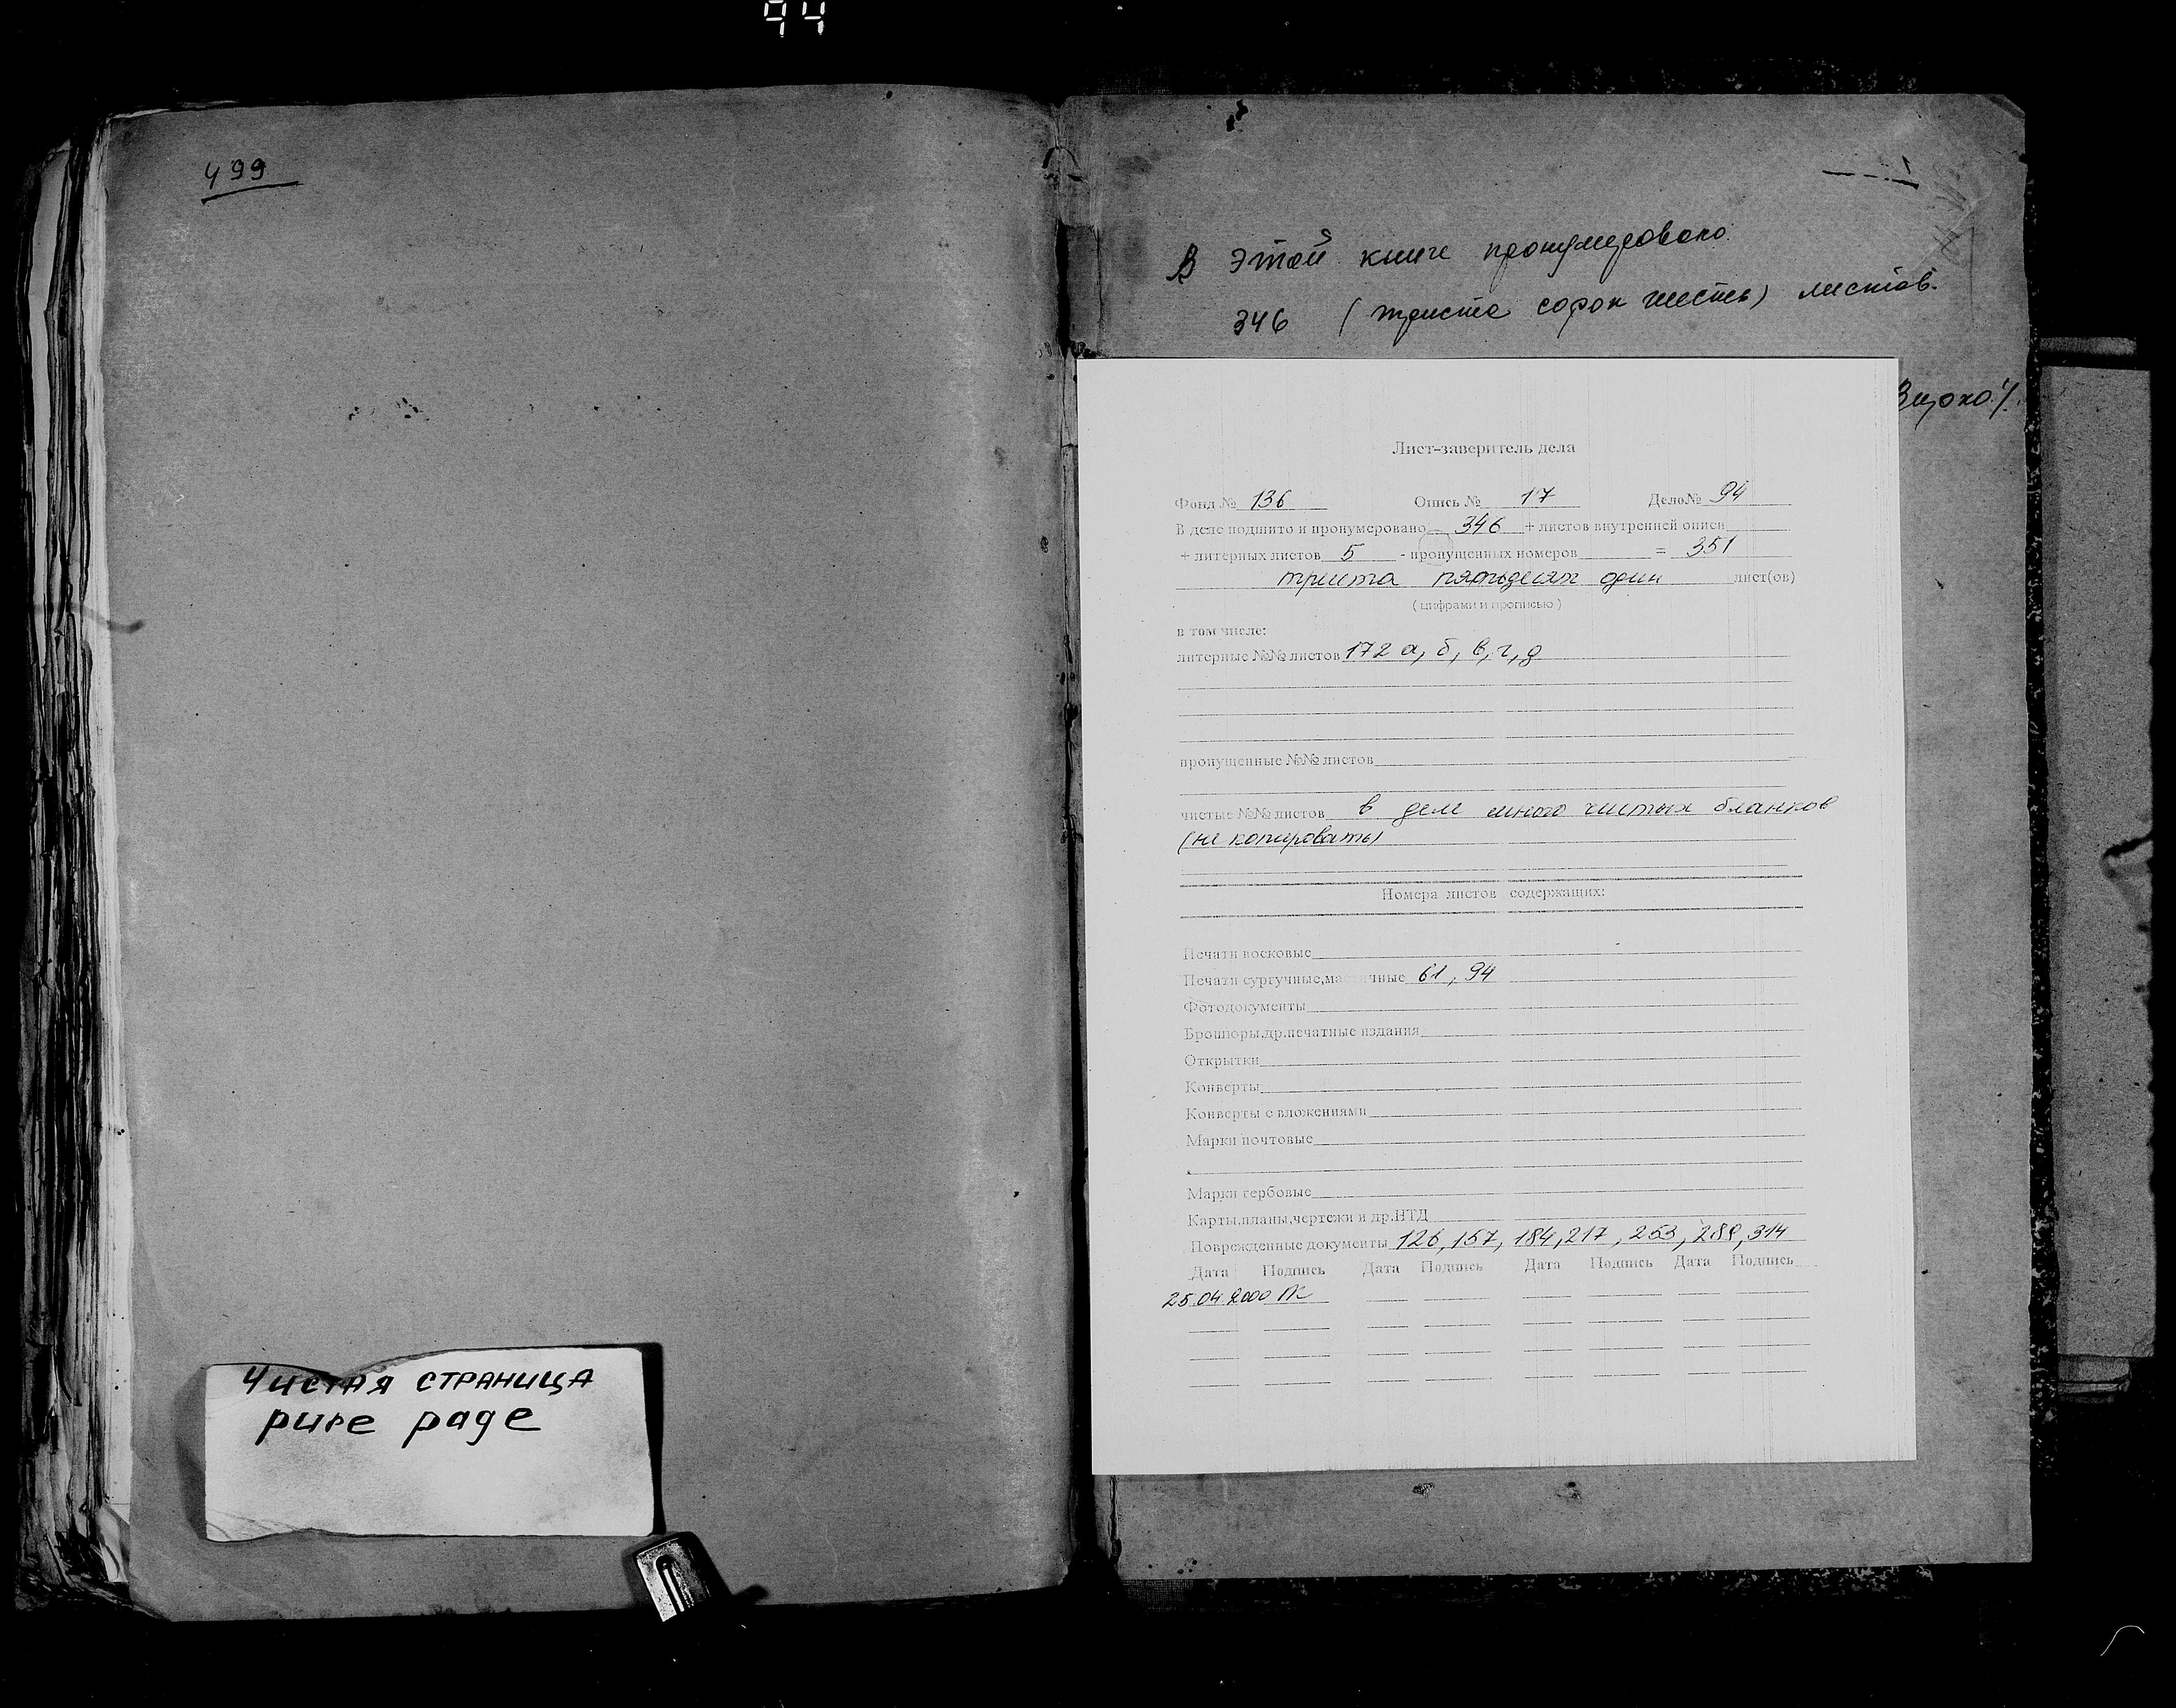 94
499
Чистая страница
pure page
В этой книге пронумеровано
346 (триста сорок шесть) листов.
Лист-заверитель дела
Фонд № 136 Опись № 17 Дело№ 94
В деле подшито и пронумеровано 346 + листов внутренней описи
+ литерных листов 5 - пропущенных номеров = 351
триста пятьдесят один лист(ов)
( цифрами и прописью )
в том числе:
литерные №№ листов 172 а, б, в, г, д
пропущенные №№ листов
чистые №№ листов в деле много чистых бланков
(не копировать)
Номера листов содержащих:
Печати восковые
Печати сургучные,мастичные 61, 94
Фотодокументы
Брошюры,др.печатные издания
Открытки
Конверты
Конверты с вложениями
Марки почтовые
Марки гербовые
Карты,планы,чертежи и др.НТД
Поврежденные документы 126, 157, 184, 217, 253, 289, 314
Дата Подпись Дата Подпись Дата Подпись Дата Подпись
25.04.2000